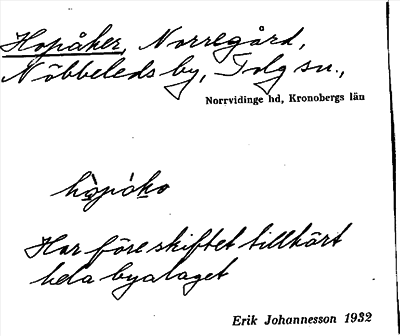 Hopåker, Norregård,
Nöbbeleds by, Tolg sn.,
Norrvidinge hd, Kronobergs län
hò̱pȧ́ko
Har före skiftet tillhört
hela byalaget
Erik Johannesson 1932